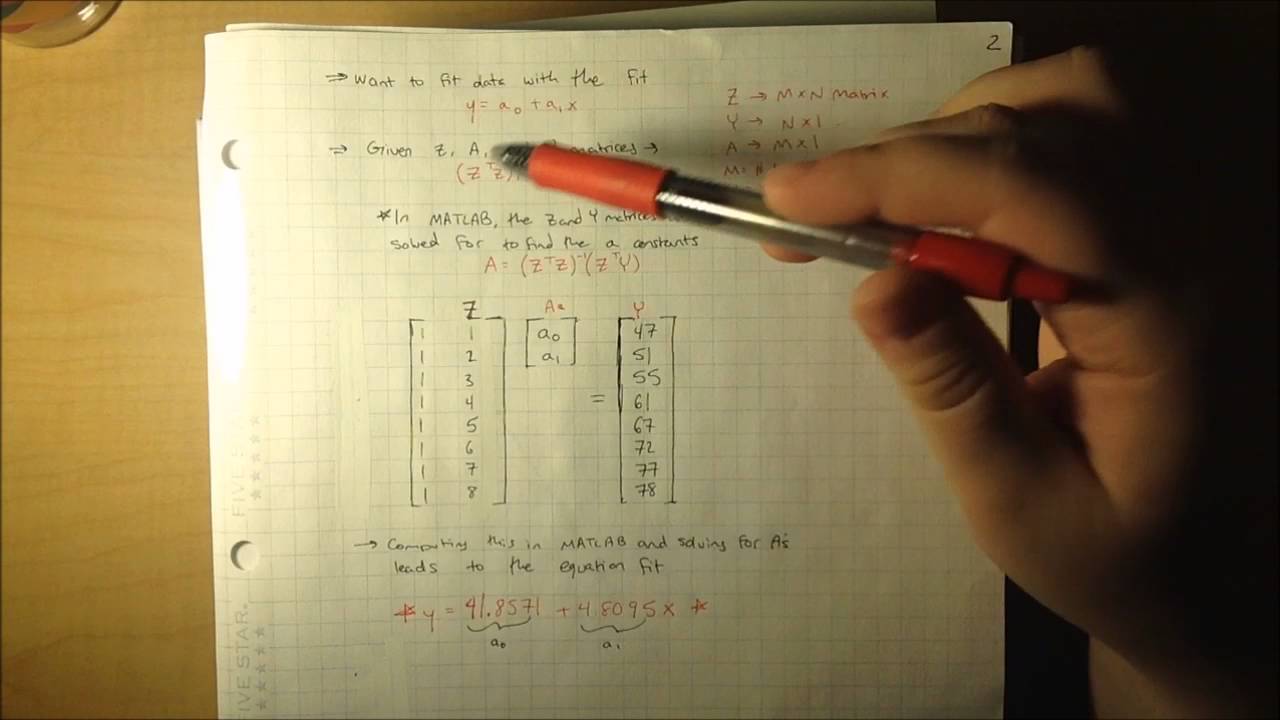 2
⇒ Want to fit data with the fit
y = a₀ + a₁x
⇒ Given Z, A, matrices →
(ZᵀZ)
*In MATLAB, the Z and Y matrices
solved for to find the a constants
A = (ZᵀZ)⁻¹(ZᵀY)
Z → M×N Matrix
Y → N×1
A → M×1
M=
Z A= Y
1 1 a₀ 47
1 2 a₁ 51
1 3 55
1 4 = 61
1 5 67
1 6 72
1 7 77
1 8 78
→ Computing this in MATLAB and solving for A's
leads to the equation fit
* y = 41.8571 + 4.8095x *
a₀ a₁
FIVE STAR
FIVE STAR.